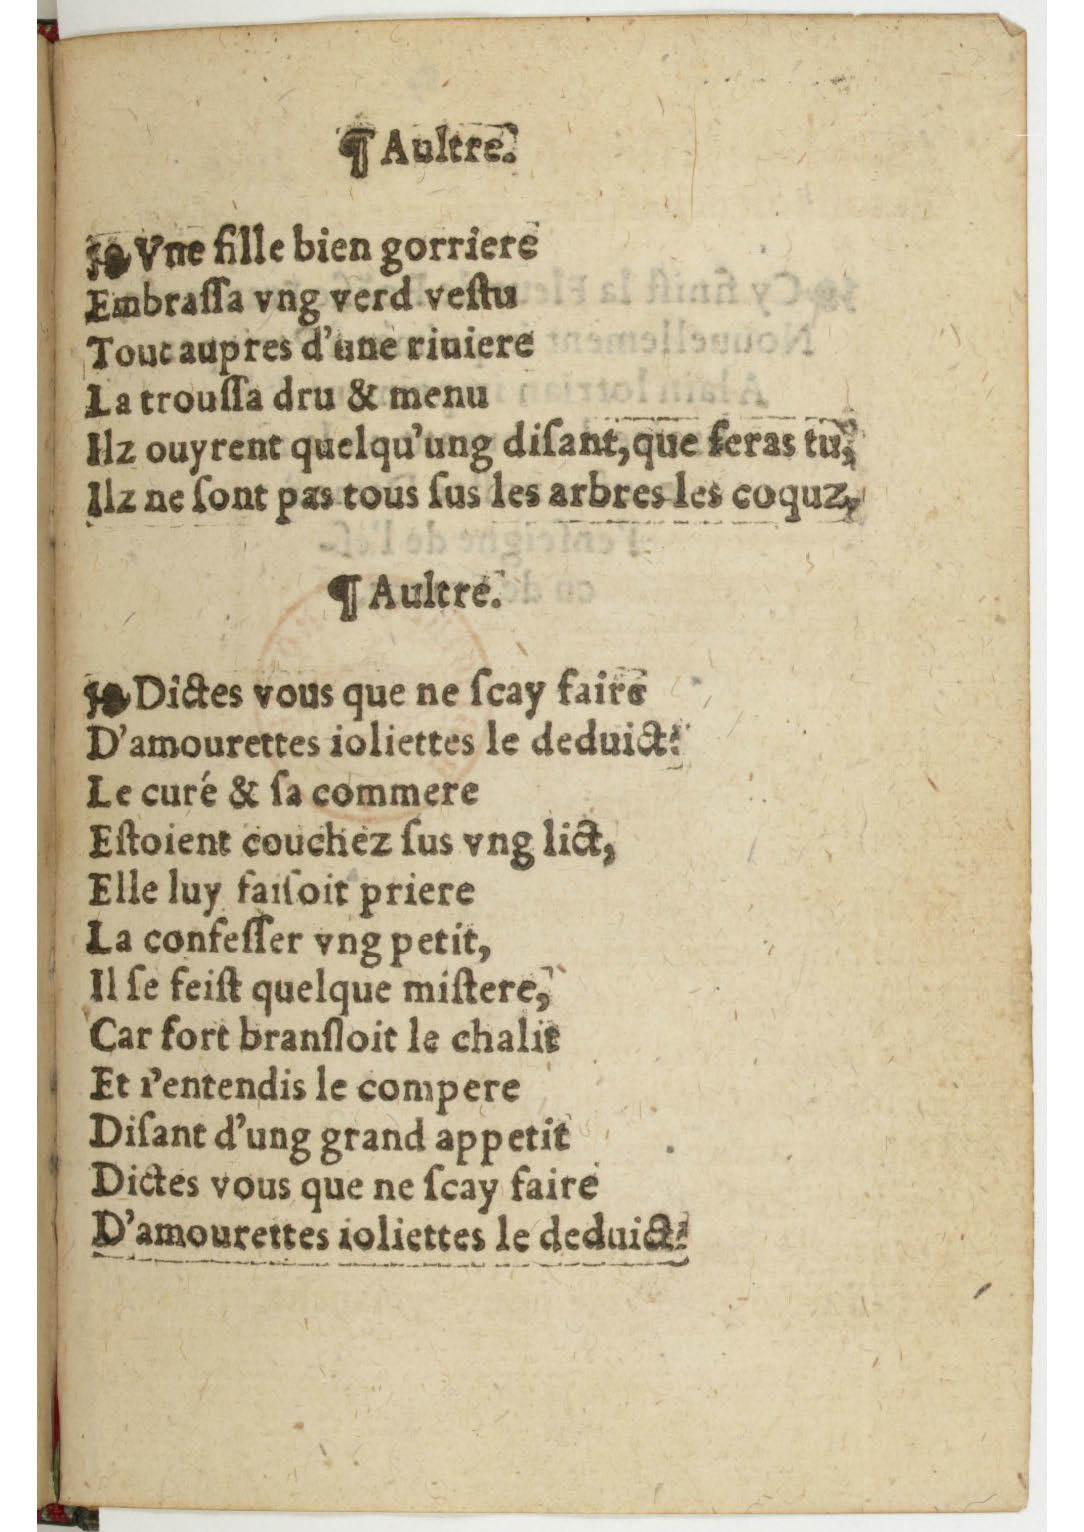 ¶ Aultre.
Vne fille bien gorriere
Embraſſa vng verd veſtu
Tout aupres d'une riuiere
La trouſſa dru & menu
Ilz ouyrent quelqu'ung diſant, que feras tu,
Ilz ne ſont pas tous ſus les arbres les coquz,
¶ Aultre.
Dictes vous que ne ſcay faire
D'amourettes ioliettes le deduict?
Le curé & ſa commere
Eſtoient couchez ſus vng lict,
Elle luy faiſoit priere
La confeſſer vng petit,
Il ſe feiſt quelque miſtere,
Car fort branſloit le chalit
Et i'entendis le compere
Diſant d'ung grand appetit
Dictes vous que ne ſcay faire
D'amourettes ioliettes le deduict?